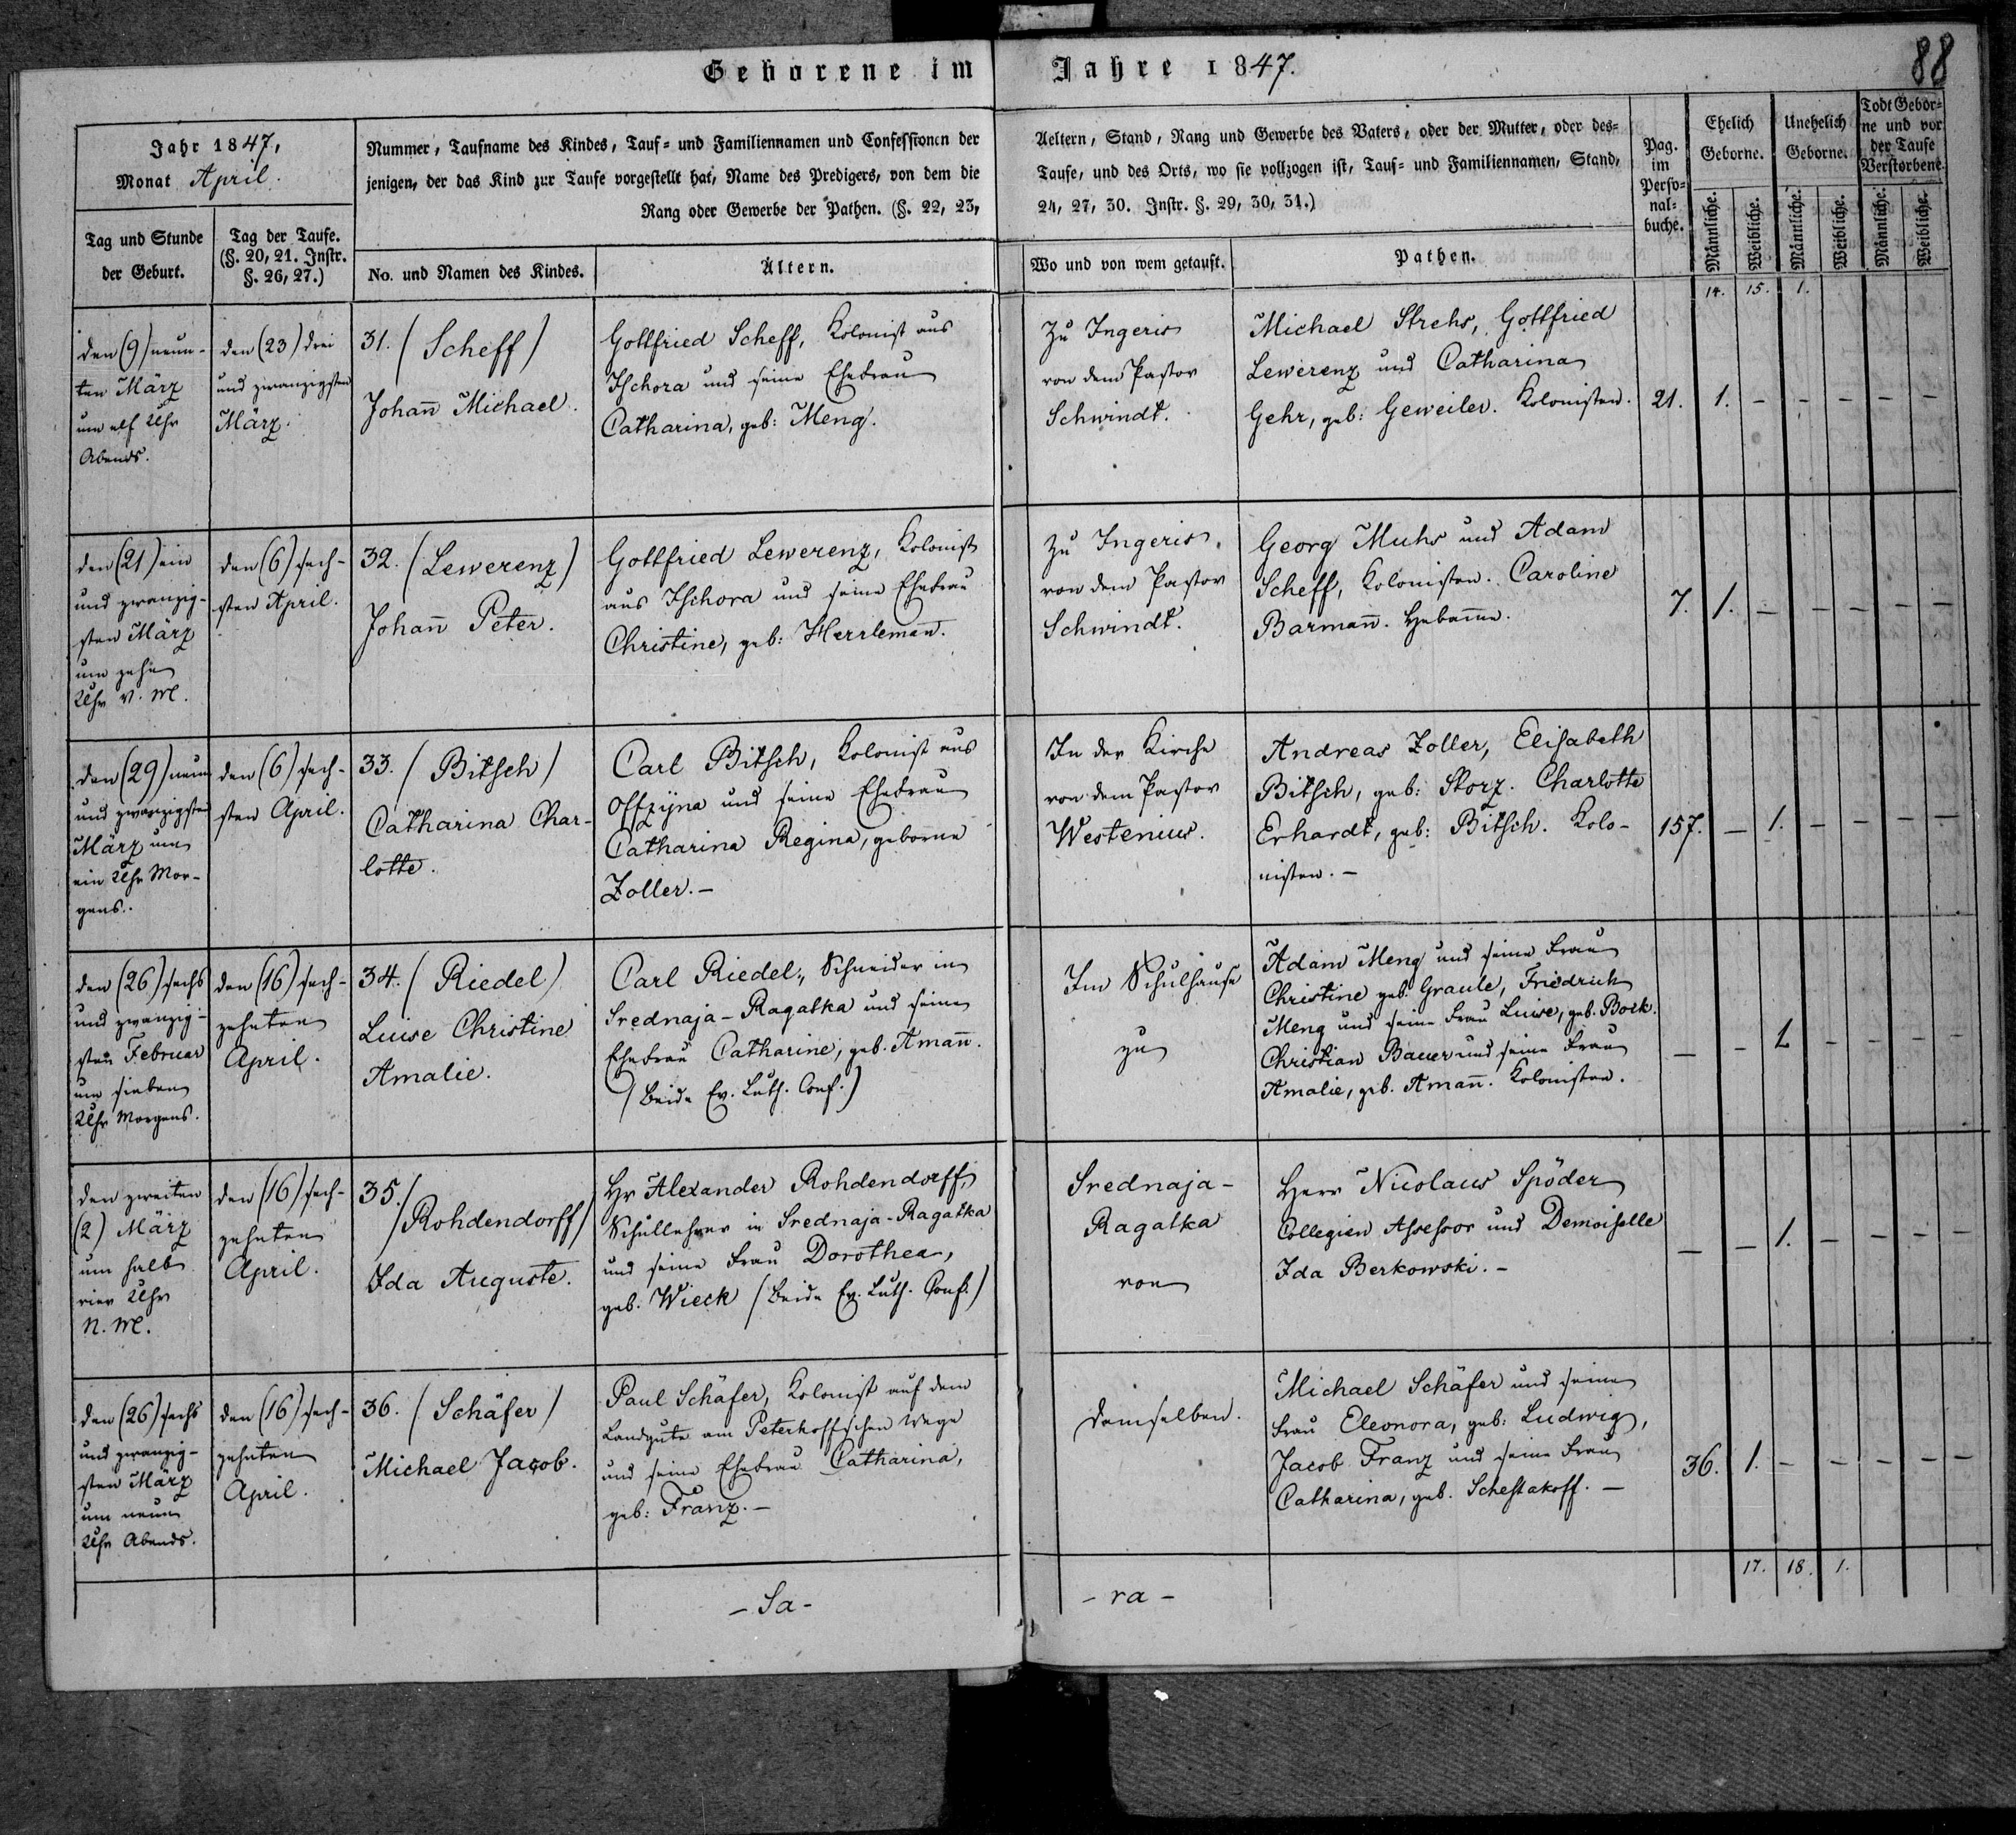 Geborene im Jahre 1847.
88
Jahr 1847,
Monat April.
Tag und Stunde
der Geburt.
Tag der Taufe.
(§. 20, 21. Instr.
§. 26, 27.)
Nummer, Taufname des Kindes, Tauf- und Familiennamen und Confessionen der
jenigen, der das Kind zur Taufe vorgestellt hat, Name des Predigers, von dem die
Rang oder Gewerbe der Pathen. (§. 22, 23,
No. und Namen des Kindes.
Ältern.
Aeltern, Stand, Rang und Gewerbe des Vaters, oder der Mutter, oder des-
Taufe, und des Orts, wo sie vollzogen ist, Tauf- und Familiennamen, Stand,
24, 27, 30. Instr. §. 29, 30, 31.)
Wo und von wem getauft.
Pathen.
Pag.
im
Perso-
nal-
buche.
Ehelich
Geborne.
Unehelich
Geborne.
Todt Gebor-
ne und vor
der Taufe
Verstorbene.
Männliche.
Weibliche.
Männliche.
Weibliche.
Männliche.
Weibliche.
14. 15. 1.
den (9) neun-
ten März
um elf Uhr
Abends.
den (23) drei
und zwanzigsten
März.
31. (Scheff)
Johan̄ Michael.
Gottfried Scheff, Kolonist aus
Ischora und seine Ehefrau
Catharina, geb: Meng.
Zu Ingeris
von dem Pastor
Schwindt.
Michael Strehs, Gottfried
Lewerenz und Catharina
Gehr, geb: Geweiler. Kolonisten.
21. 1. – – – – –
den (21) ein
und zwanzig-
sten März
um zehn
Uhr V. M.
den (6) sech-
sten April.
32. (Lewerenz)
Johan̄ Peter.
Gottfried Lewerenz, Kolonist
aus Ischora und seine Ehefrau
Christine, geb: Herrleman̄.
Zu Ingeris.
von dem Pastor
Schwindt.
Georg Muhs und Adam
Scheff, Kolonisten. Caroline
Barman̄. Hebam̄e.
7. 1. – – – – –
den (29) neun
und zwanzigsten
März um
ein Uhr Mor-
gens.
den (6) sech-
sten April.
33. (Bitsch)
Catharina Char-
lotte.
Carl Bitsch, Kolonist aus
Offzijna und seine Ehefrau
Catharina Regina, geborne
Zoller. –
In der Kirche
von dem Pastor
Westenius.
Andreas Zoller, Elisabeth
Bitsch, geb: Storz. Charlotte
Erhardt, geb: Bitsch. Kolo-
nisten. –
157. – 1. – – – –
den (26) sechs
und zwanzig-
sten Februar
um sieben
Uhr Morgens.
den (16) sech-
zehnten
April.
34. (Riedel)
Luise Christine
Amalie.
Carl Riedel, Schneider in
Srednaja-Ragatka und seine
Ehefrau Catharine, geb. Aman̄.
(Beide Ev. Luth. Conf.)
Im Schulhause
zu
Adam Meng und seine Frau
Christine geb. Graule, Friedrich
Meng und seine Frau Luise, geb. Bock.
Christian Bauer und seine Frau
Amalie, geb. Aman̄. Kolonisten.
– – 1. – – – –
den zweiten
(2) März
um halb
vier Uhr
N. M.
den (16) sech-
zehnten
April.
35.
(Rohdendorff)
Ida Auguste.
Hr Alexander Rohdendorff,
Schullehrer in Srednaja-Ragatka
und seine Frau Dorothea,
geb. Wieck (Beide Ev. Luth. Conf.)
Srednaja-
Ragatka
von
Herr Nicolaus Spöder
Collegien Assessor und Demoiselle
Ida Berkowski. –
– – 1. – – – –
den (26) sechs
und zwanzig-
sten März
um neun
Uhr Abends.
den (16) sech-
zehnten
April.
36. (Schäfer)
Michael Jacob.
Paul Schäfer, Kolonist auf dem
Landgute am Peterhoffschen Wege
und seine Ehefrau Catharina,
geb: Franz. –
demselben.
Michael Schäfer und seine
Frau Eleonora, geb: Ludwig,
Jacob Franz und seine Frau
Catharina, geb. Schestakoff. –
36. 1. – – – – –
– Sa –
– ra –
17. 18. 1.